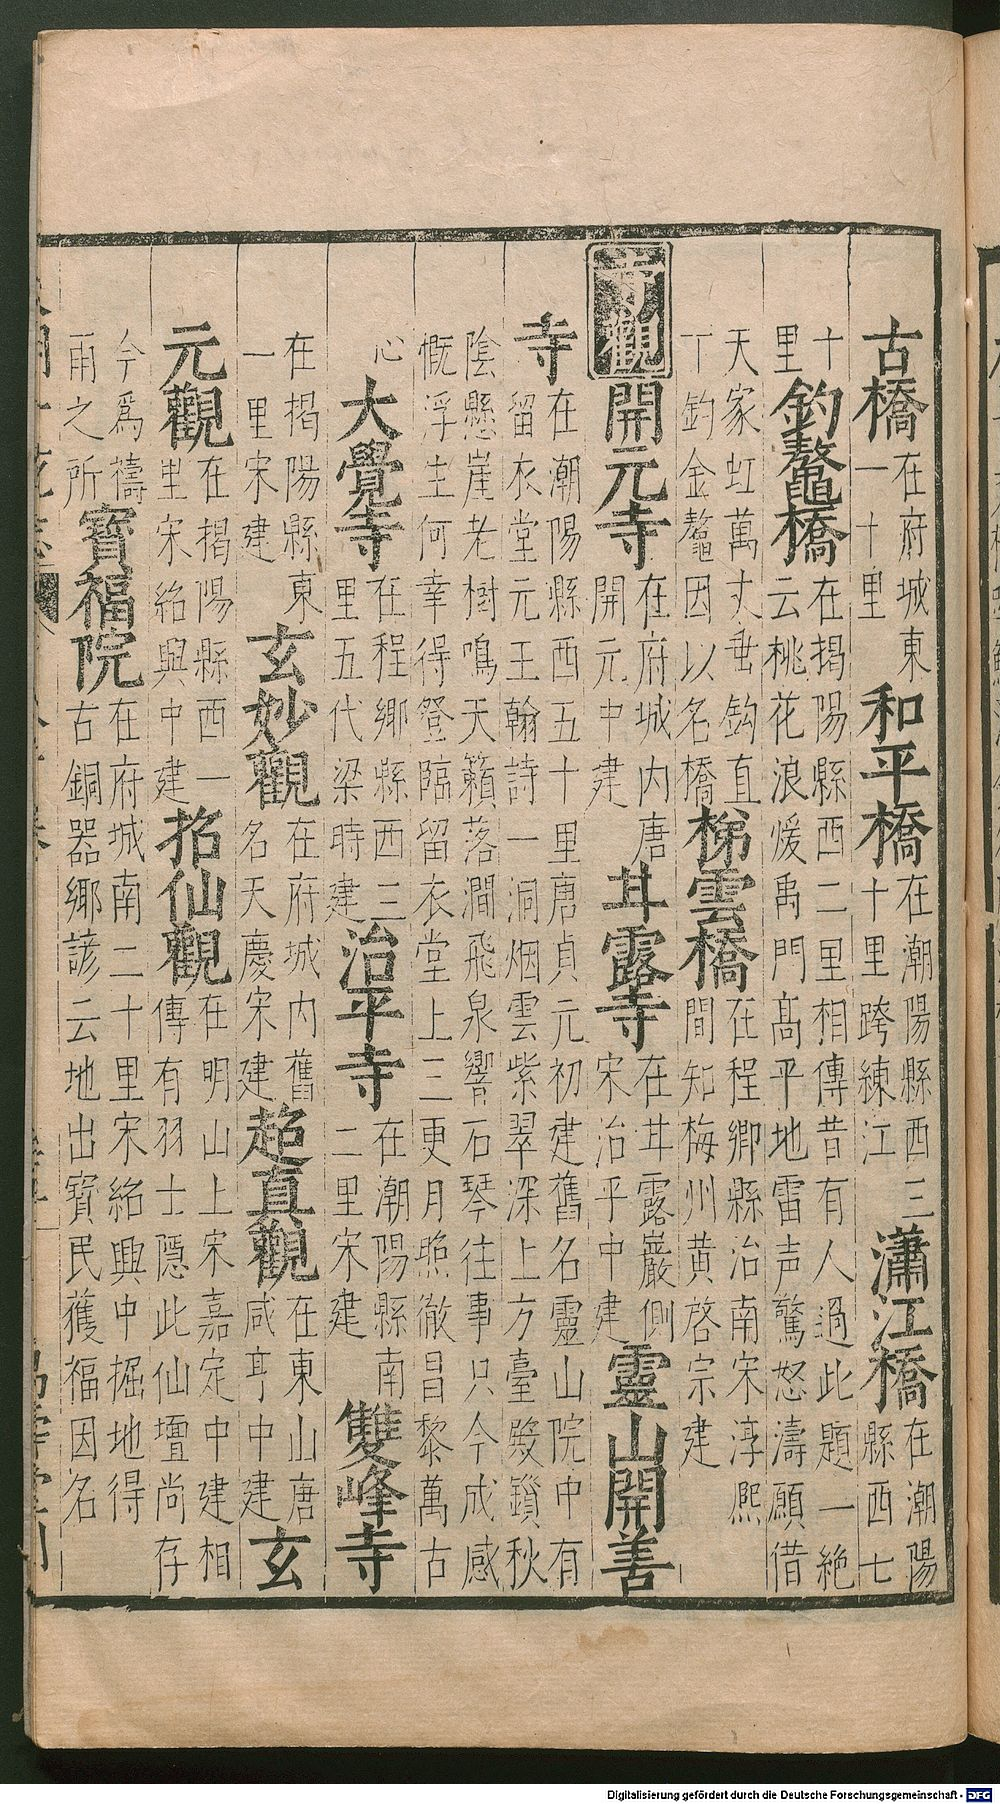 古橋在府城東一十里和平橋在潮陽縣西三十里跨練江瀟江橋在潮陽縣西七
十里釣鼇橋在揭陽縣西二里相傳昔有人過此題一絶云桃花浪煖禹門髙平地雷声驚怒濤願借
天家虹萬丈垂鈎直丅鈞金鼇因以名橋梯雲橋在程鄉縣治南宋淳熈間知梅州黄啓宗建
寺觀開元寺在府城内唐開元中建甘露寺在甘露巖側宋治平中建靈山開善
寺在潮陽縣西五十里唐貞元初建舊名靈山院中有留衣堂元王翰詩一洞烟雲紫翠深上方臺殿鎖秋
陰懸崖老樹鳴天籟落澗飛泉響石琴往事只今成感慨浮生何幸得登臨留衣堂上三更月照徹昌黎萬古
心大覺寺在程鄉縣西三里五代梁時建治平寺在潮陽縣南二里宋建雙峰寺
在揭陽縣東一里宋建玄妙觀在府城内舊名天慶宋建超真觀在東山唐咸亨中建玄
元觀在揭陽縣西一里宋紹興中建招仙觀在明山上宋嘉定中建相傳有羽士隱此仙壇尚存
今爲禱雨之所寳福院在府城南二十里宋紹興中掘地得古銅器鄉諺云地出寳民獲福因名
Digitalisierung gefördert durch die Deutsche Forschungsgemeinschaft - DFG